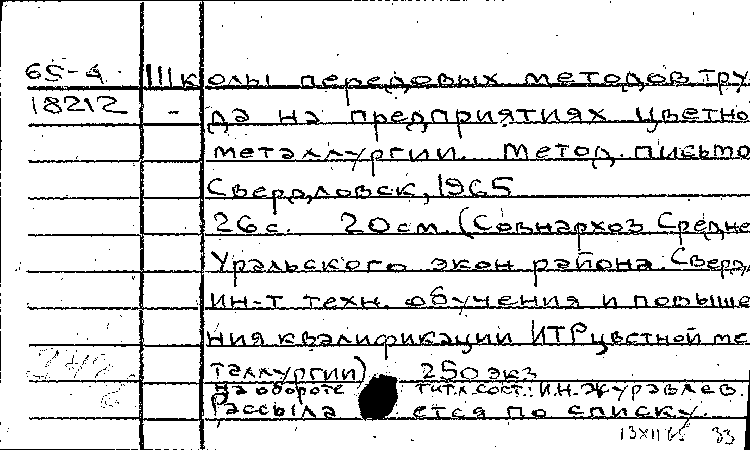 65-4 Школы передовых методов тру
18212 - да на предприятиях цветно
металлургии. Метод. письмо
Свердловск, 1965
26 с. 20 см. (Совнархоз Средне
Уральского экон района. Сверд.
ин-т техн. обучения и повыше
ния квалификации ИТР цветной ме
таллургии) 250 экз
На обороте тит. л. сост.: И.Н. Журавлев.
Рассылается по списку.
13 XII 65 33